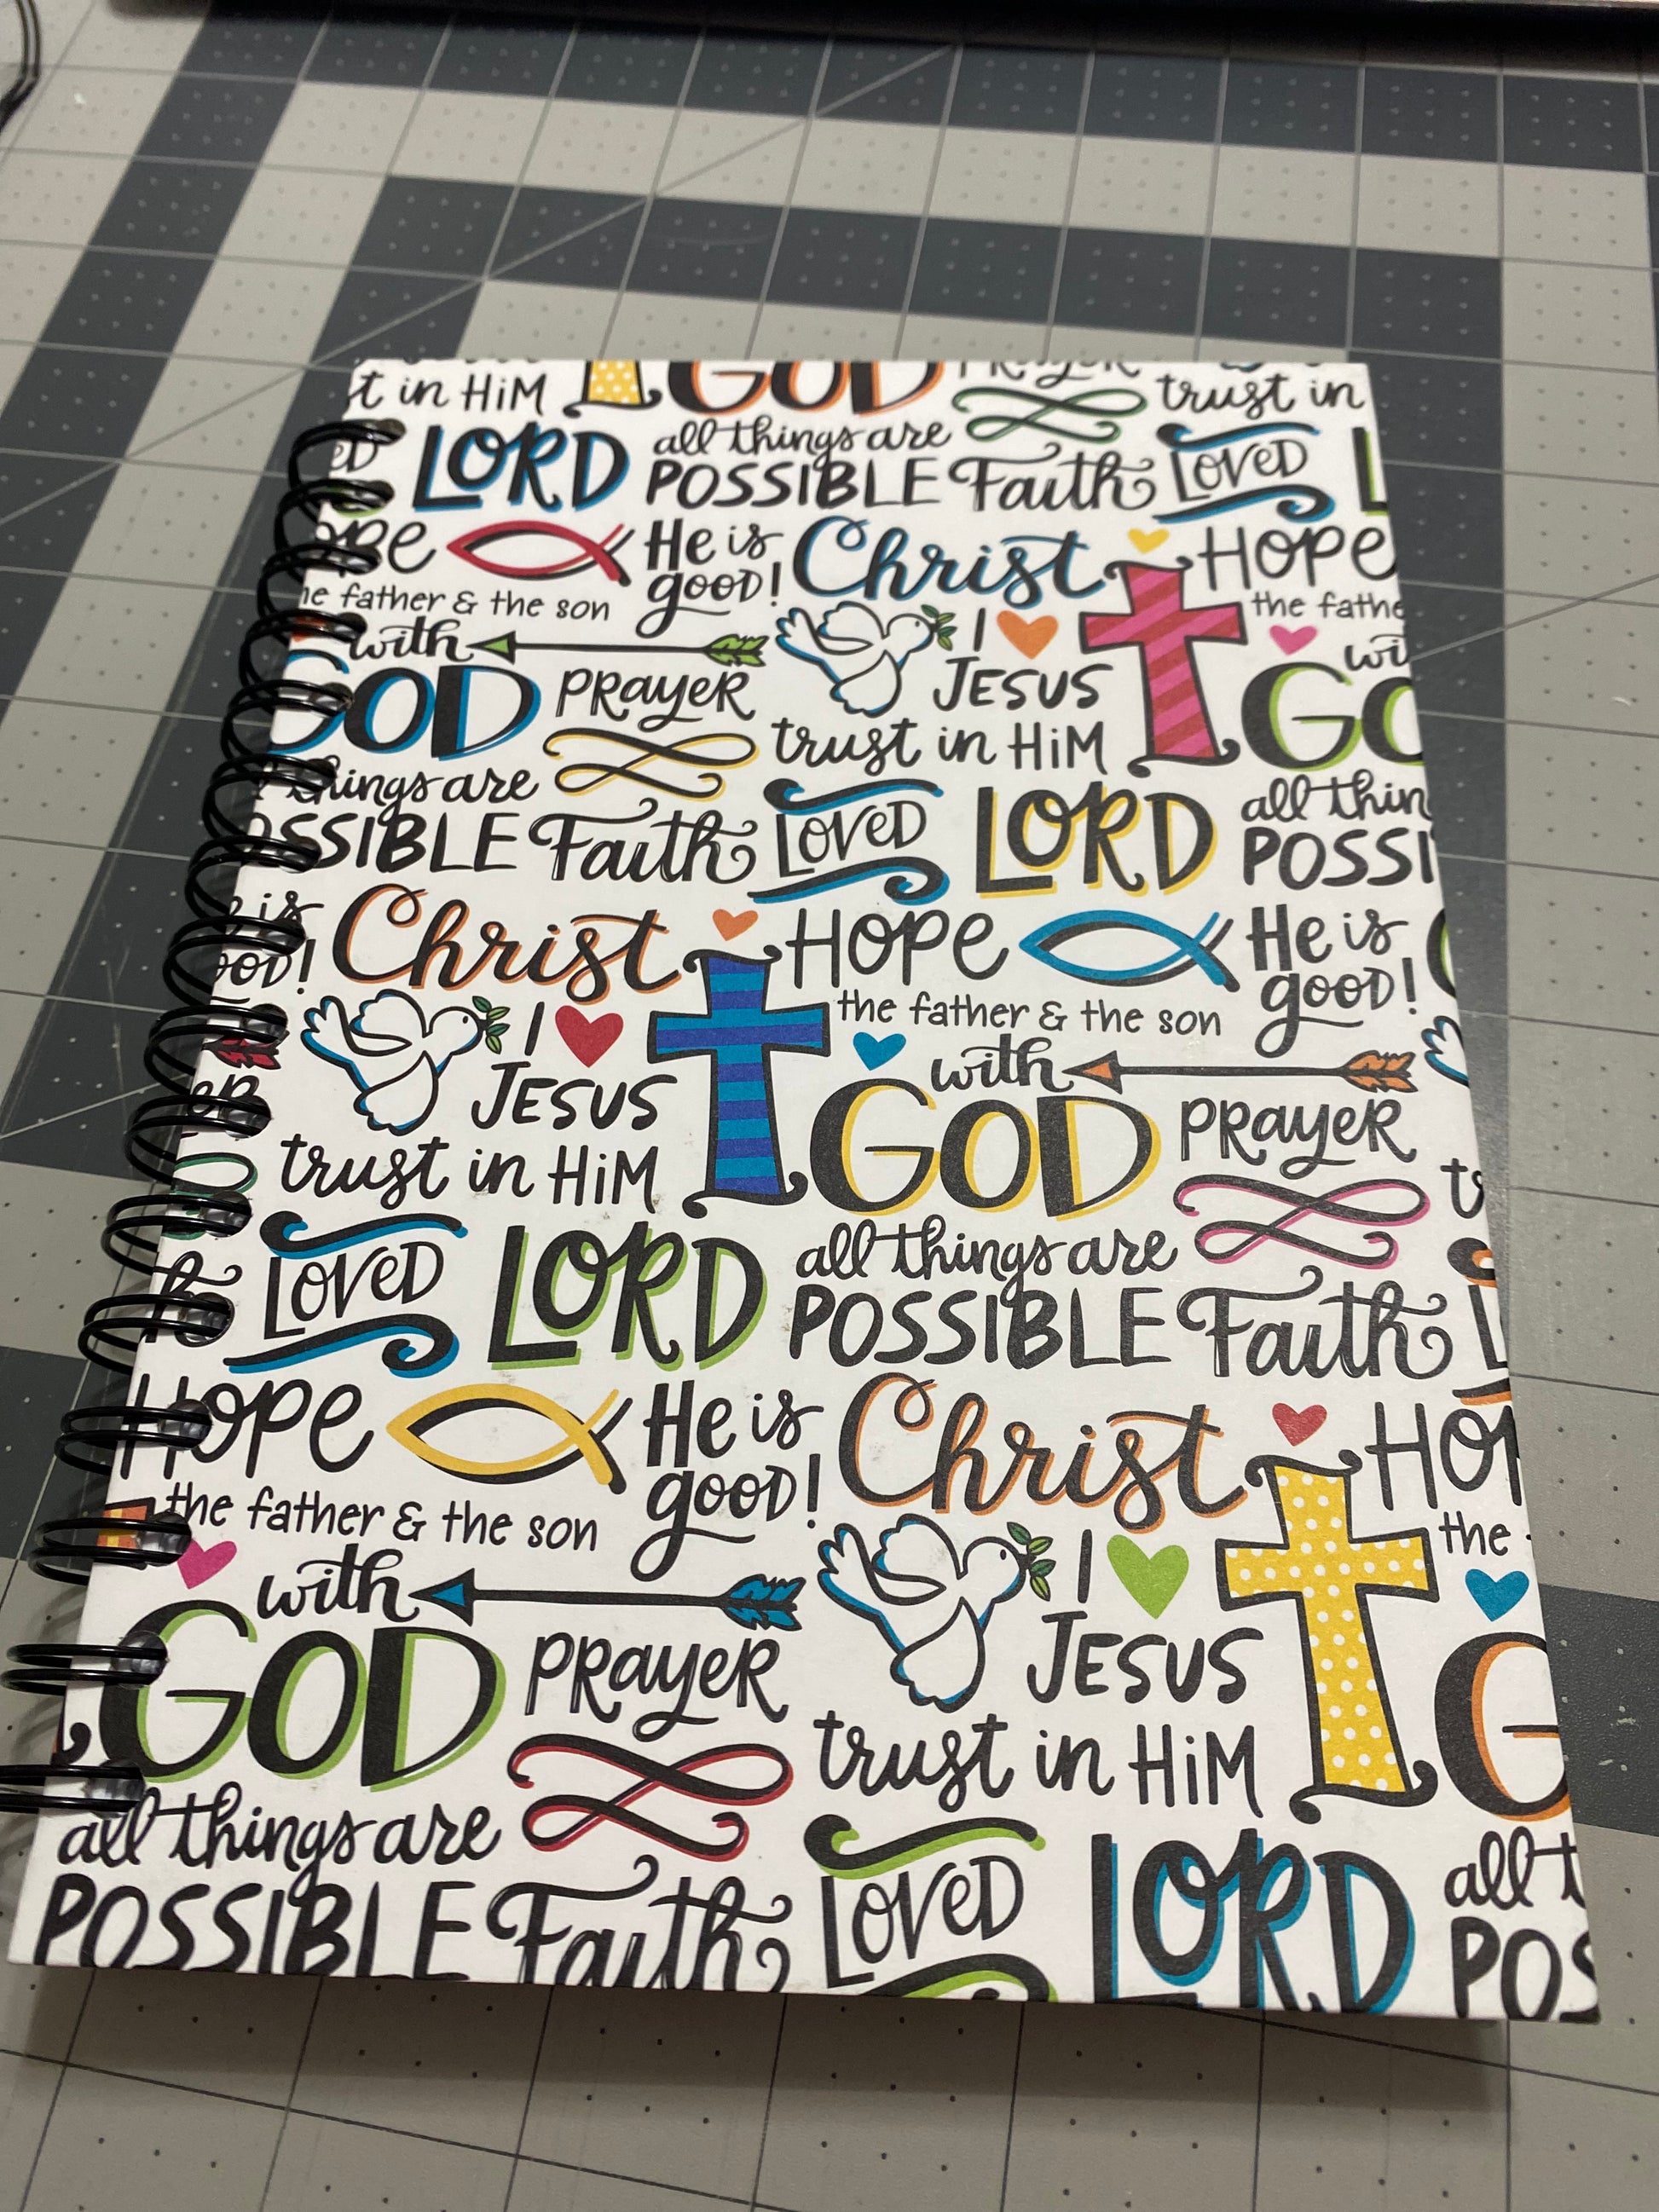 t in HiM GOD PRayeR trust in
LORD all things are POSSIBLE Faith LOVeD L
ope He is good! Christ HOPe
he father & the son I JESUS the fathe
with wi
GOD PRayeR trust in HiM GO
things are all thin
OSSIBLE Faith LOVeD LORD POSSI
e is
ooD! Christ HOPe He is good!
I JESUS the father & the son
with
eR trust in HiM GOD PRayeR tr
th LOVeD LORD all things are POSSIBLE Faith L
HOPe He is good! Christ HOP
the father & the son I JESUS the
with
GOD PRayeR trust in HiM G
all things are all t
POSSIBLE Faith LOVeD LORD POS